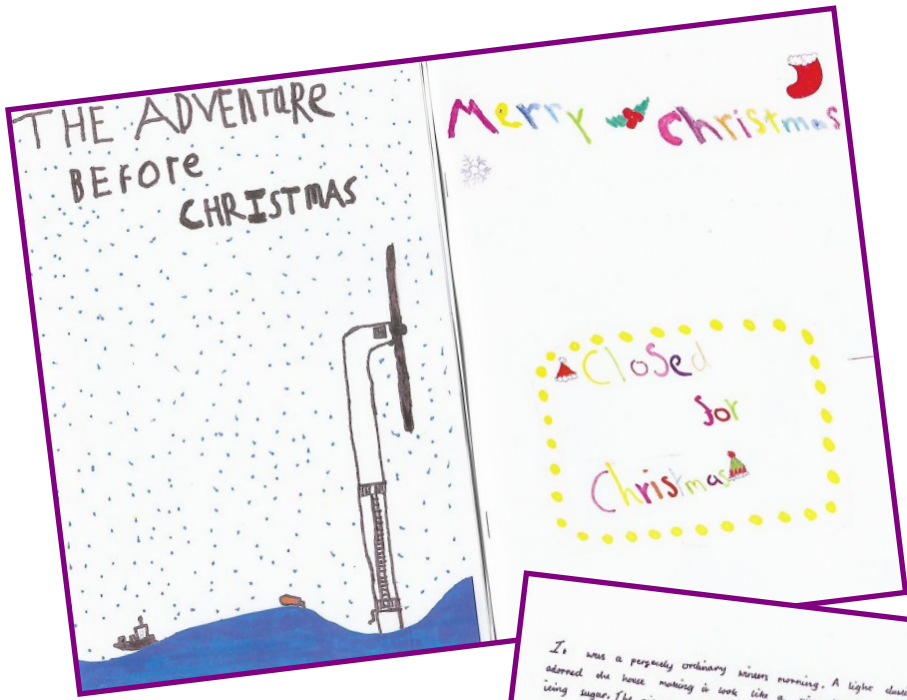 THE ADVENTURE
BEFORE
CHRISTMAS
Merry Christmas
Closed
for
Christmas
It was a perfectly ordinary winters morning. A light
adorned the house making it look like a
icing sugar. The